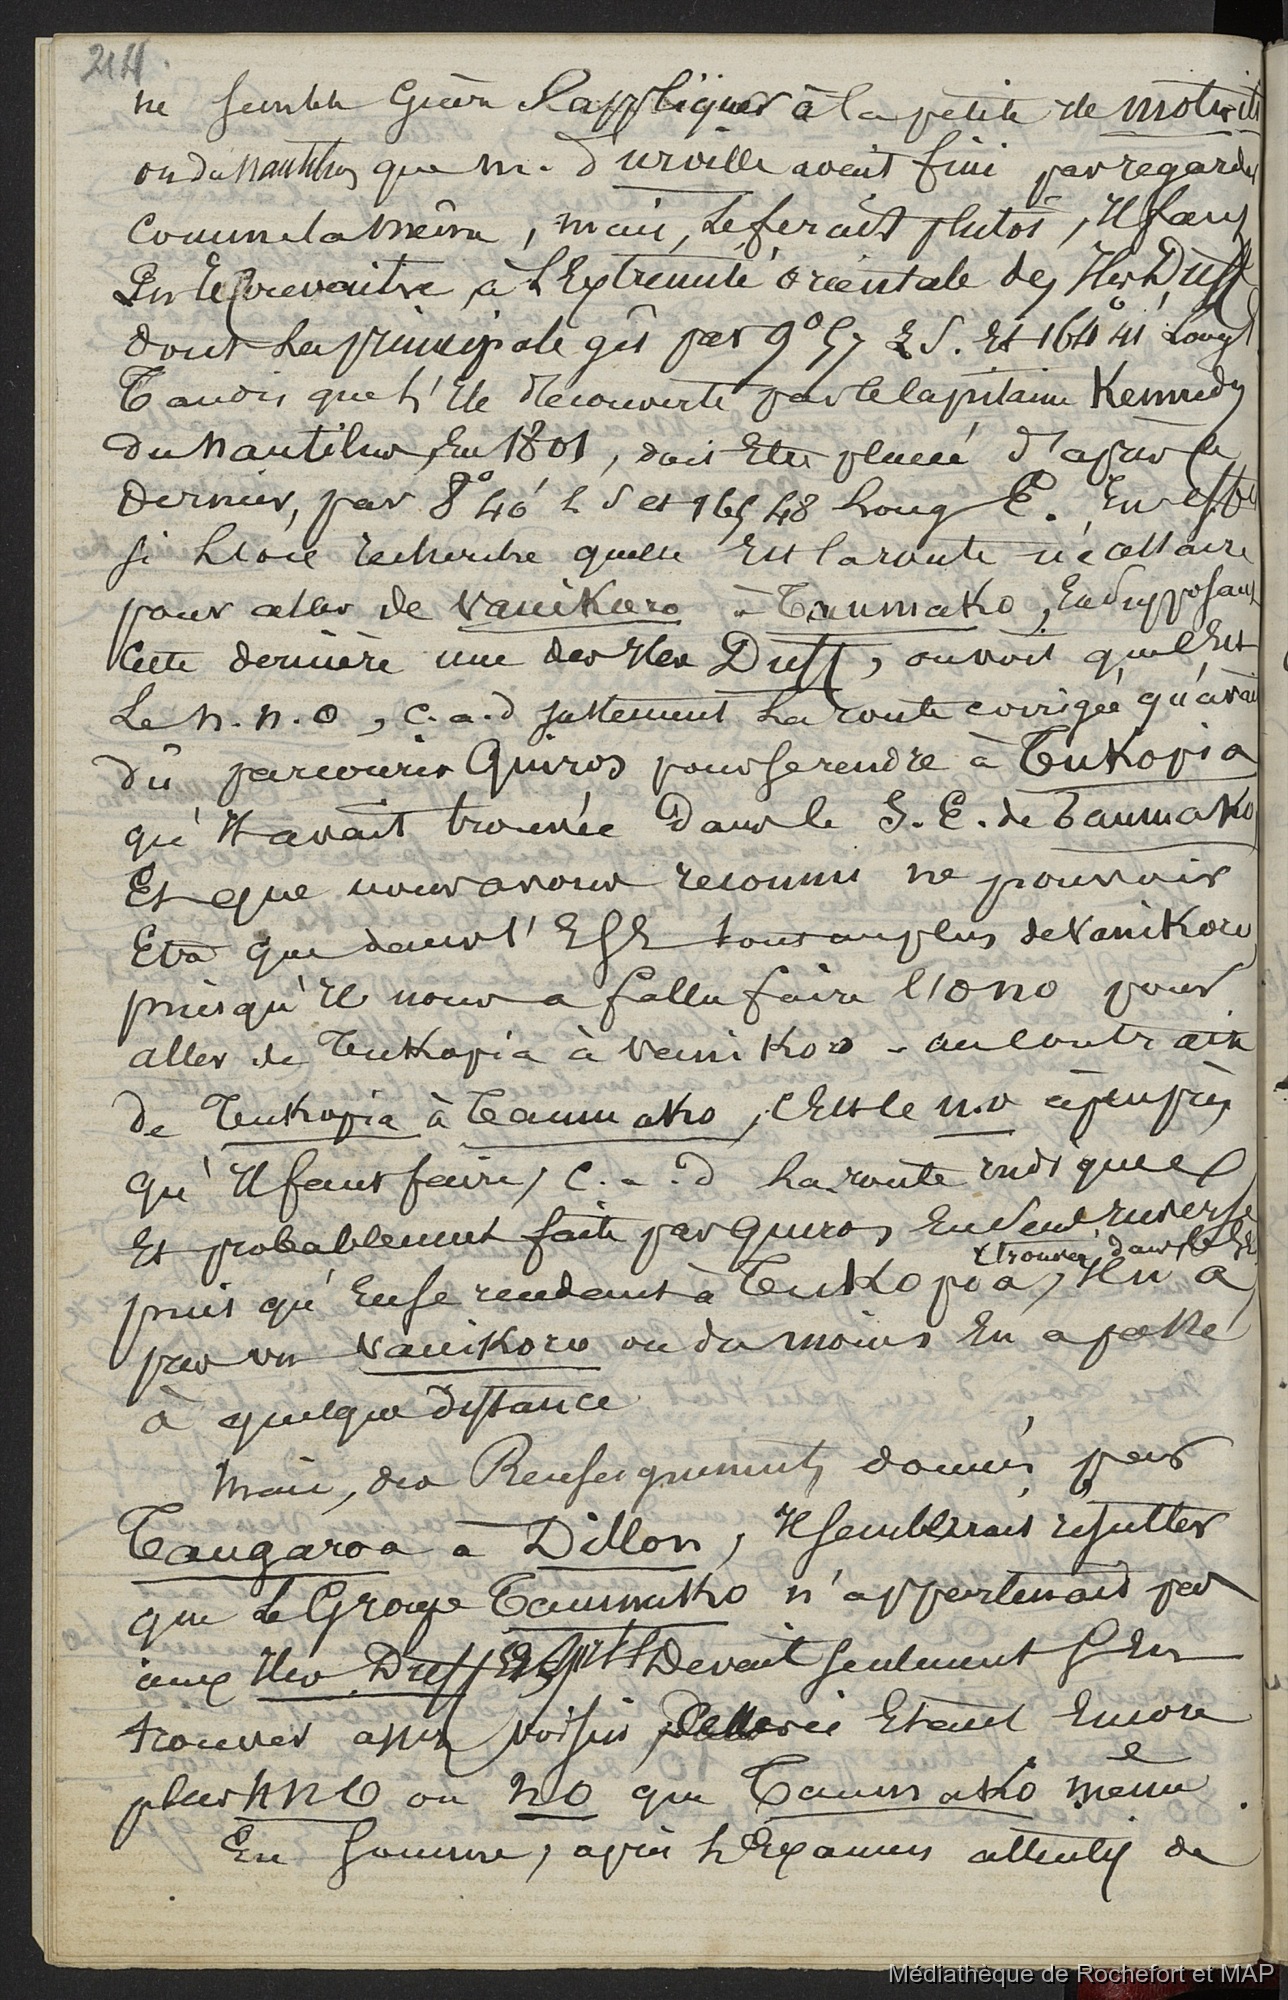 214.
ne semble Guère S'appliquer à la petite de motuiti
ou du Nautilus que M. Durville avait fini par regarder
comme la même, mais, Le ferait plutôt, Il faut
En Reconnaitre, à L'Extremité orientale des Iles Duff
dont La principale gît par 9° 57 L S. Et 164° 41' Longt
Tandis que L'Ile decouverte par le Capitaine Kennedy
du Nautilus, En 1801, doit Etre placée d'après ce
dernier, par 8° 40' L S et 165 48 Long E. En effet
si L'on recherche quelle Est la route nécessaire
pour aller de Vanikoro à Taumako, En Supposant
Cette dernière une des Iles Duff, on voit quelle Est
Le N.N.O, c.a.d justement La route corrigée qu'avait
dû parcourir Quiros pour se rendre à Tukopia
qu'Il avait trouvée dans le S.E. de Taumako
Et que nous avons reconnu ne pouvoir
Etre que dans l'ESE tout au plus de Vanikoro
puisqu'Il nous a fallu faire l'ONO pour
aller de Tukopia à Vanikoro - au Contraire
de Tukopia à Taumako, C'Est le NO à peu près
qu'Il faut faire, c.a.d La route indiquée
Et probablement faite par Quiros En Sens Inverse
trouvée dans le SE
puis qu'En se rendant à Tukopia, Il n'a
pas vu Vanikoro ou du moins En a passé
à quelque distance
Mais, des Renseignements donnés par
Tangaroa à Dillon, Il semblerait résulter
que Le Groupe Taumako n'appartenait pas
aux Iles Duff Et qu'Il Devait seulement S'En
trouver assez voisin, Celles ci Etant Encore
plus NNO ou NO que Taumako même.
En Somme, après L'Examen attentif de
Médiathèque de Rochefort et MAP